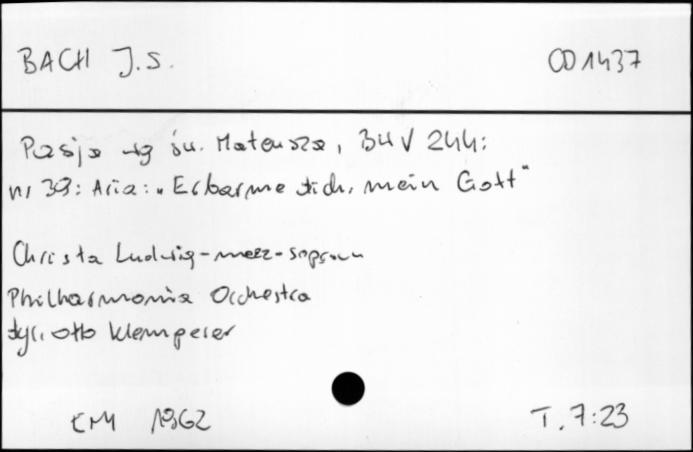 BACH J.S. CD 1437
Pasja wg św. Mateusza, BWV 244:
nr 39: Aria: „Erbarme dich, mein Gott"
Christa Ludwig - mezz - sopran
Philharmonia Orchestra
dyr. Otto Klemperer
EMI 1962 T. 7:23